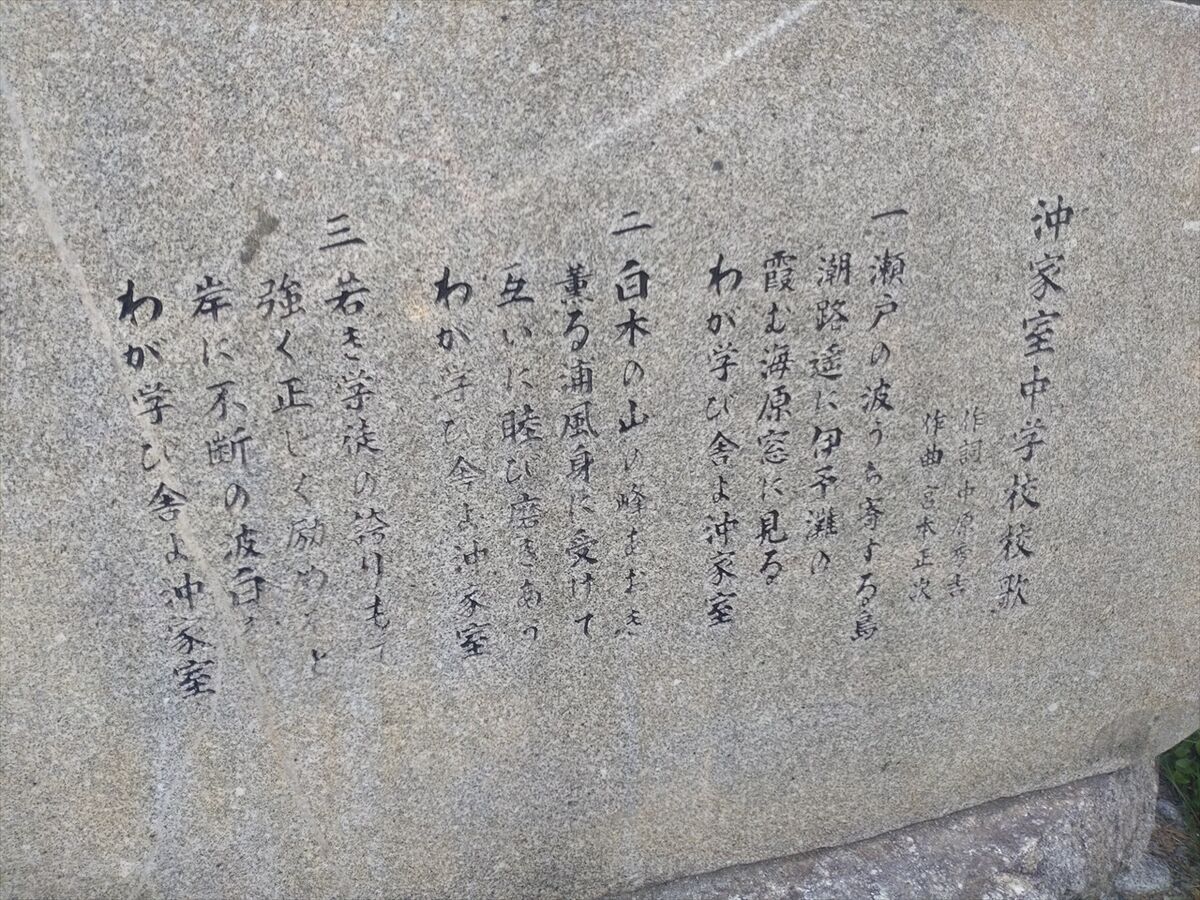 沖家室中学校校歌
作詞 中原秀吉
作曲 宮本正次
一 瀬戸の波うち寄する島
潮路遙に伊予灘の
霞む海原窓に見る
わが学び舎よ沖家室
二 白木の山の峰あおき
薫る浦風身に受けて
互いに睦び磨きあう
わが学び舎よ沖家室
三 若き学徒の誇りもて
強く正しく励めよと
岸に不断の波白
わが学び舎よ沖家室